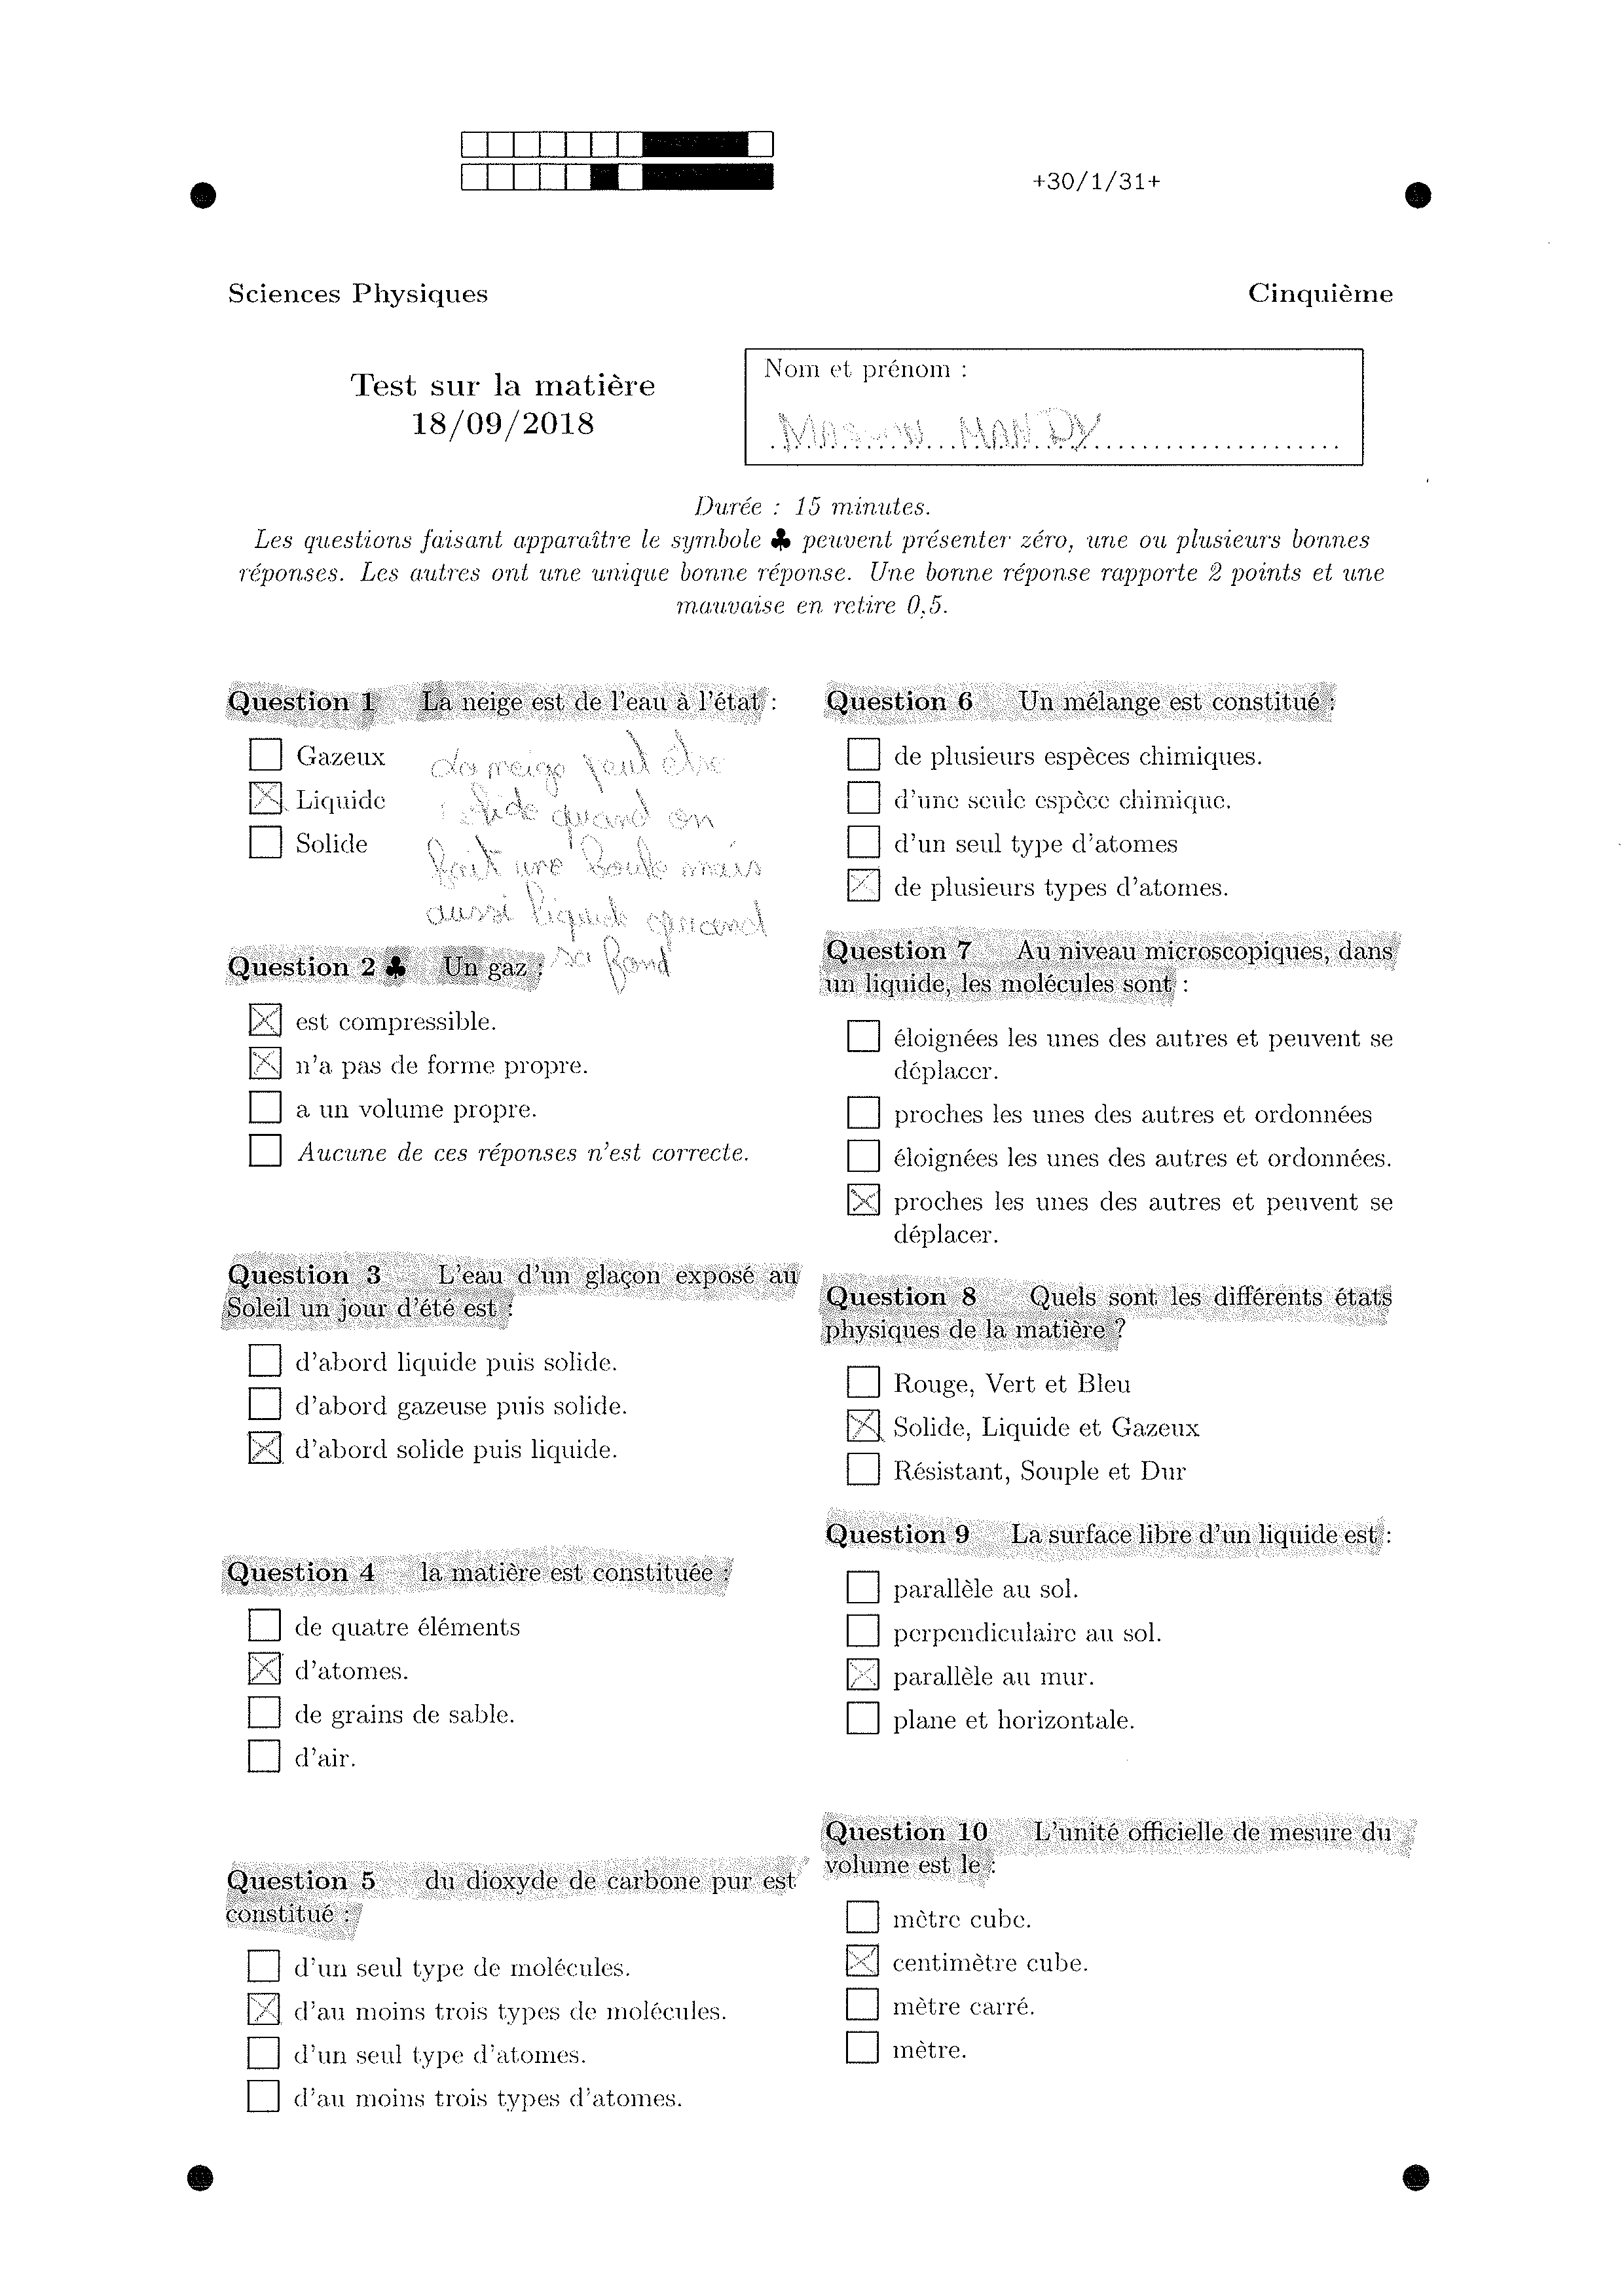 +30/1/31+
Sciences Physiques
Cinquième
Test sur la matière
18/09/2018
Nom et prénom :
MASSON MANDY
Durée : 15 minutes.
Les questions faisant apparaître le symbole ♣ peuvent présenter zéro, une ou plusieurs bonnes
réponses. Les autres ont une unique bonne réponse. Une bonne réponse rapporte 2 points et une
mauvaise en retire 0,5.
Question 1 La neige est de l'eau à l'état :
Gazeux
Liquide
Solide
La neige peut être
solide quand on
fait une boule mais
aussi liquide quand
sa fond
Question 2 ♣ Un gaz :
est compressible.
n'a pas de forme propre.
a un volume propre.
Aucune de ces réponses n'est correcte.
Question 3 L'eau d'un glaçon exposé au
Soleil un jour d'été est :
d'abord liquide puis solide.
d'abord gazeuse puis solide.
d'abord solide puis liquide.
Question 4 la matière est constituée :
de quatre éléments
d'atomes.
de grains de sable.
d'air.
Question 5 du dioxyde de carbone pur est
constitué :
d'un seul type de molécules.
d'au moins trois types de molécules.
d'un seul type d'atomes.
d'au moins trois types d'atomes.
Question 6 Un mélange est constitué :
de plusieurs espèces chimiques.
d'une seule espèce chimique.
d'un seul type d'atomes
de plusieurs types d'atomes.
Question 7 Au niveau microscopiques, dans
un liquide, les molécules sont :
éloignées les unes des autres et peuvent se
déplacer.
proches les unes des autres et ordonnées
éloignées les unes des autres et ordonnées.
proches les unes des autres et peuvent se
déplacer.
Question 8 Quels sont les différents états
physiques de la matière ?
Rouge, Vert et Bleu
Solide, Liquide et Gazeux
Résistant, Souple et Dur
Question 9 La surface libre d'un liquide est :
parallèle au sol.
perpendiculaire au sol.
parallèle au mur.
plane et horizontale.
Question 10 L'unité officielle de mesure du
volume est le :
mètre cube.
centimètre cube.
mètre carré.
mètre.